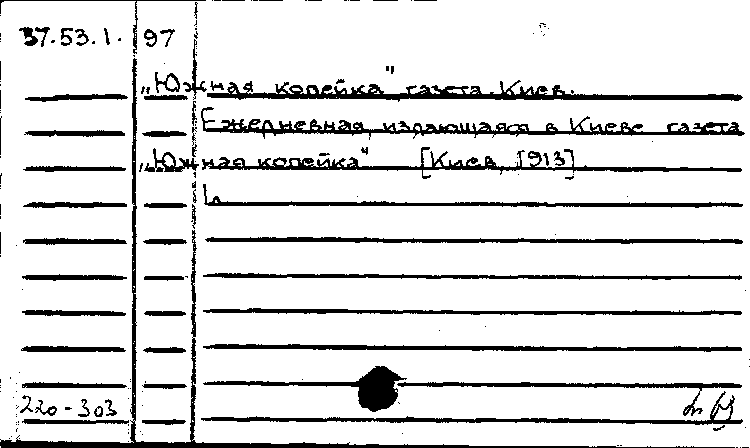 37.53.1. 97
„Южная копейка" газета. Киев.
Ежедневная, издающаяся в Киеве газета
„Южная копейка" [Киев, 1913].
220-303